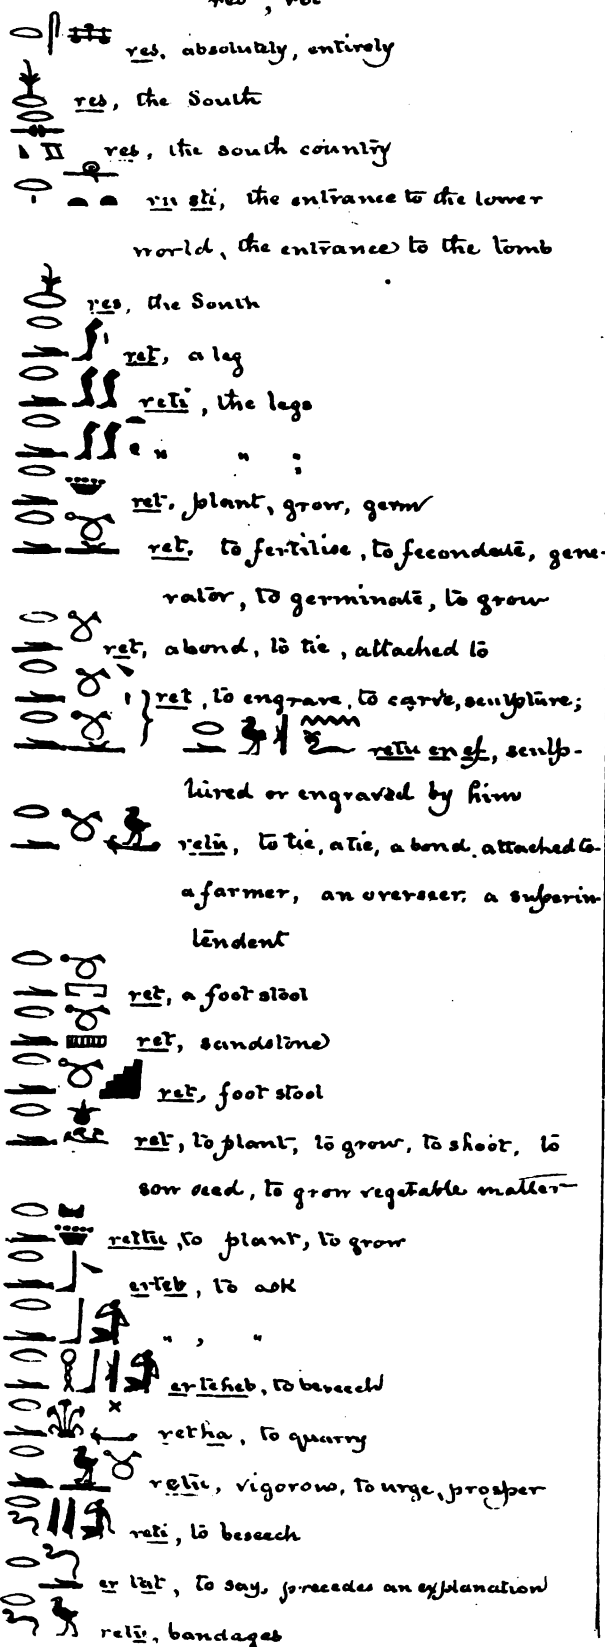 res, absolutely, entirely
res, the South
res, the south country
ru sti, the entrance to the lower
world, the entrance to the tomb
res, the South
ret, a leg
reti, the legs
" " ;
ret, plant, grow, germ
ret, to fertilise, to fecondate, gene-
rator, to germinate, to grow
ret, a bond, to tie, attached to
ret, to engrave, to carve, sculpture;
retu en ef, sculp-
tured or engraved by him
retu, to tie, a tie, a bond, attached to
a farmer, an overseer, a superin
tendent
ret, a foot stool
ret, sandstone
ret, foot stool
ret, to plant, to grow, to shoot, to
sow seed, to grow vegetable matter
rettu, to plant, to grow
erteb, to ask
" , "
erteheb, to beseech
retha, to quarry
retu, vigorous, to urge, prosper
reti, to beseech
er tat, to say, precedes an explanation
retu, bandages